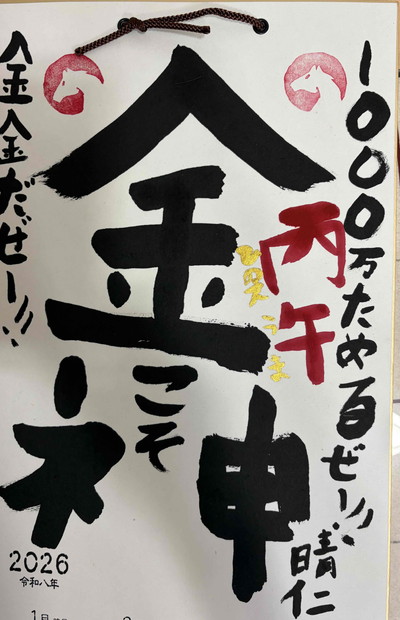 1000万ためるぜー!!
晴仁
丙午
ひのえ うま
金
こそ
神
金金だぜー!!!
2026
令和八年
1月